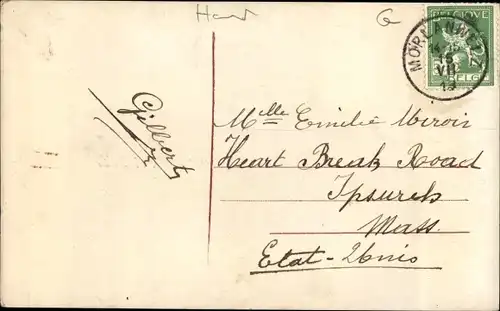 Hand
G
BELGIQUE
MORLANWELZ
15
VII
13
Gilbert
Mlle Emilie Miroir
Heart Break Road
Ipswich
Mass.
Etat-Unis